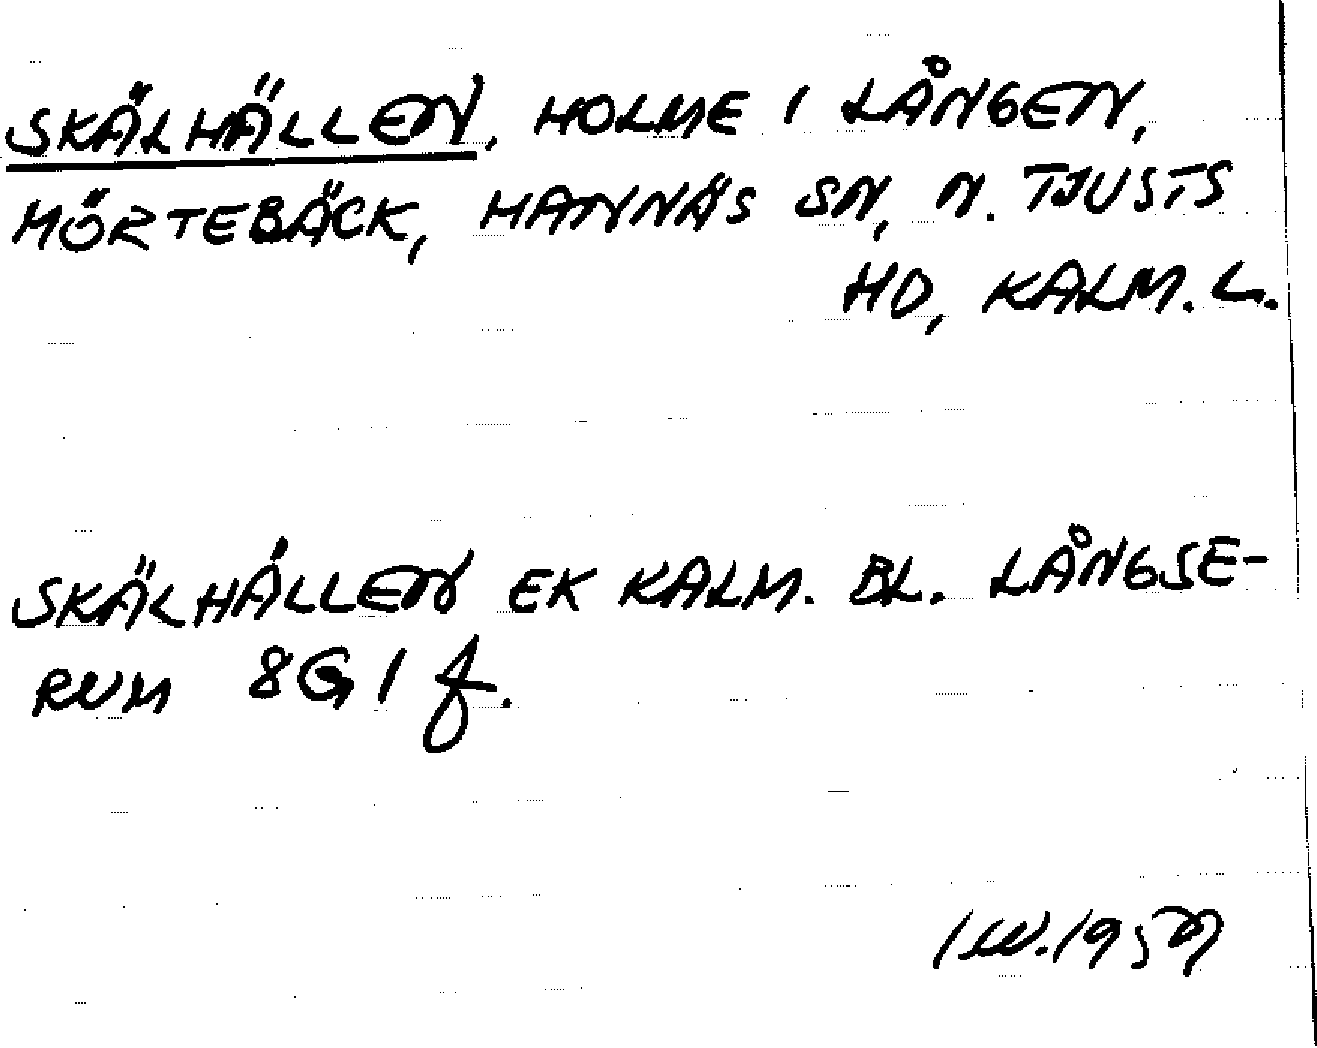 SKÄLHÄLLEN, HOLME I LÅNGEN,
MÖRTEBÄCK, HANNÄS SN, N. TJUSTS
HD, KALM. L.
SKÄLHÄLLEN EK KALM. BL. LÅNGSE-
RUM 8G1f.
I.W. 1957